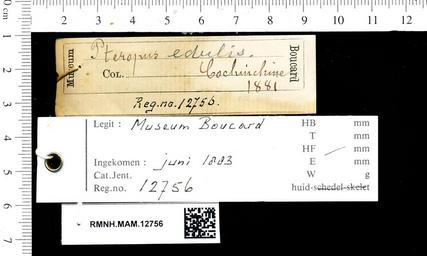 0 cm 1 2 3 4 5 6 7
2 3 4 5 6 7 8 9 10 11 12
Museum
Pteropus edulis.
Boucard
COL.. Cochinchine
1881
Reg.no.12756.
Legit : Museum Boucard
HB mm
T mm
HF mm
Ingekomen : juni 1883
E mm
Cat.Jent.
W g
Reg.no. 12756
huid-schedel-skelet
RMNH.MAM.12756